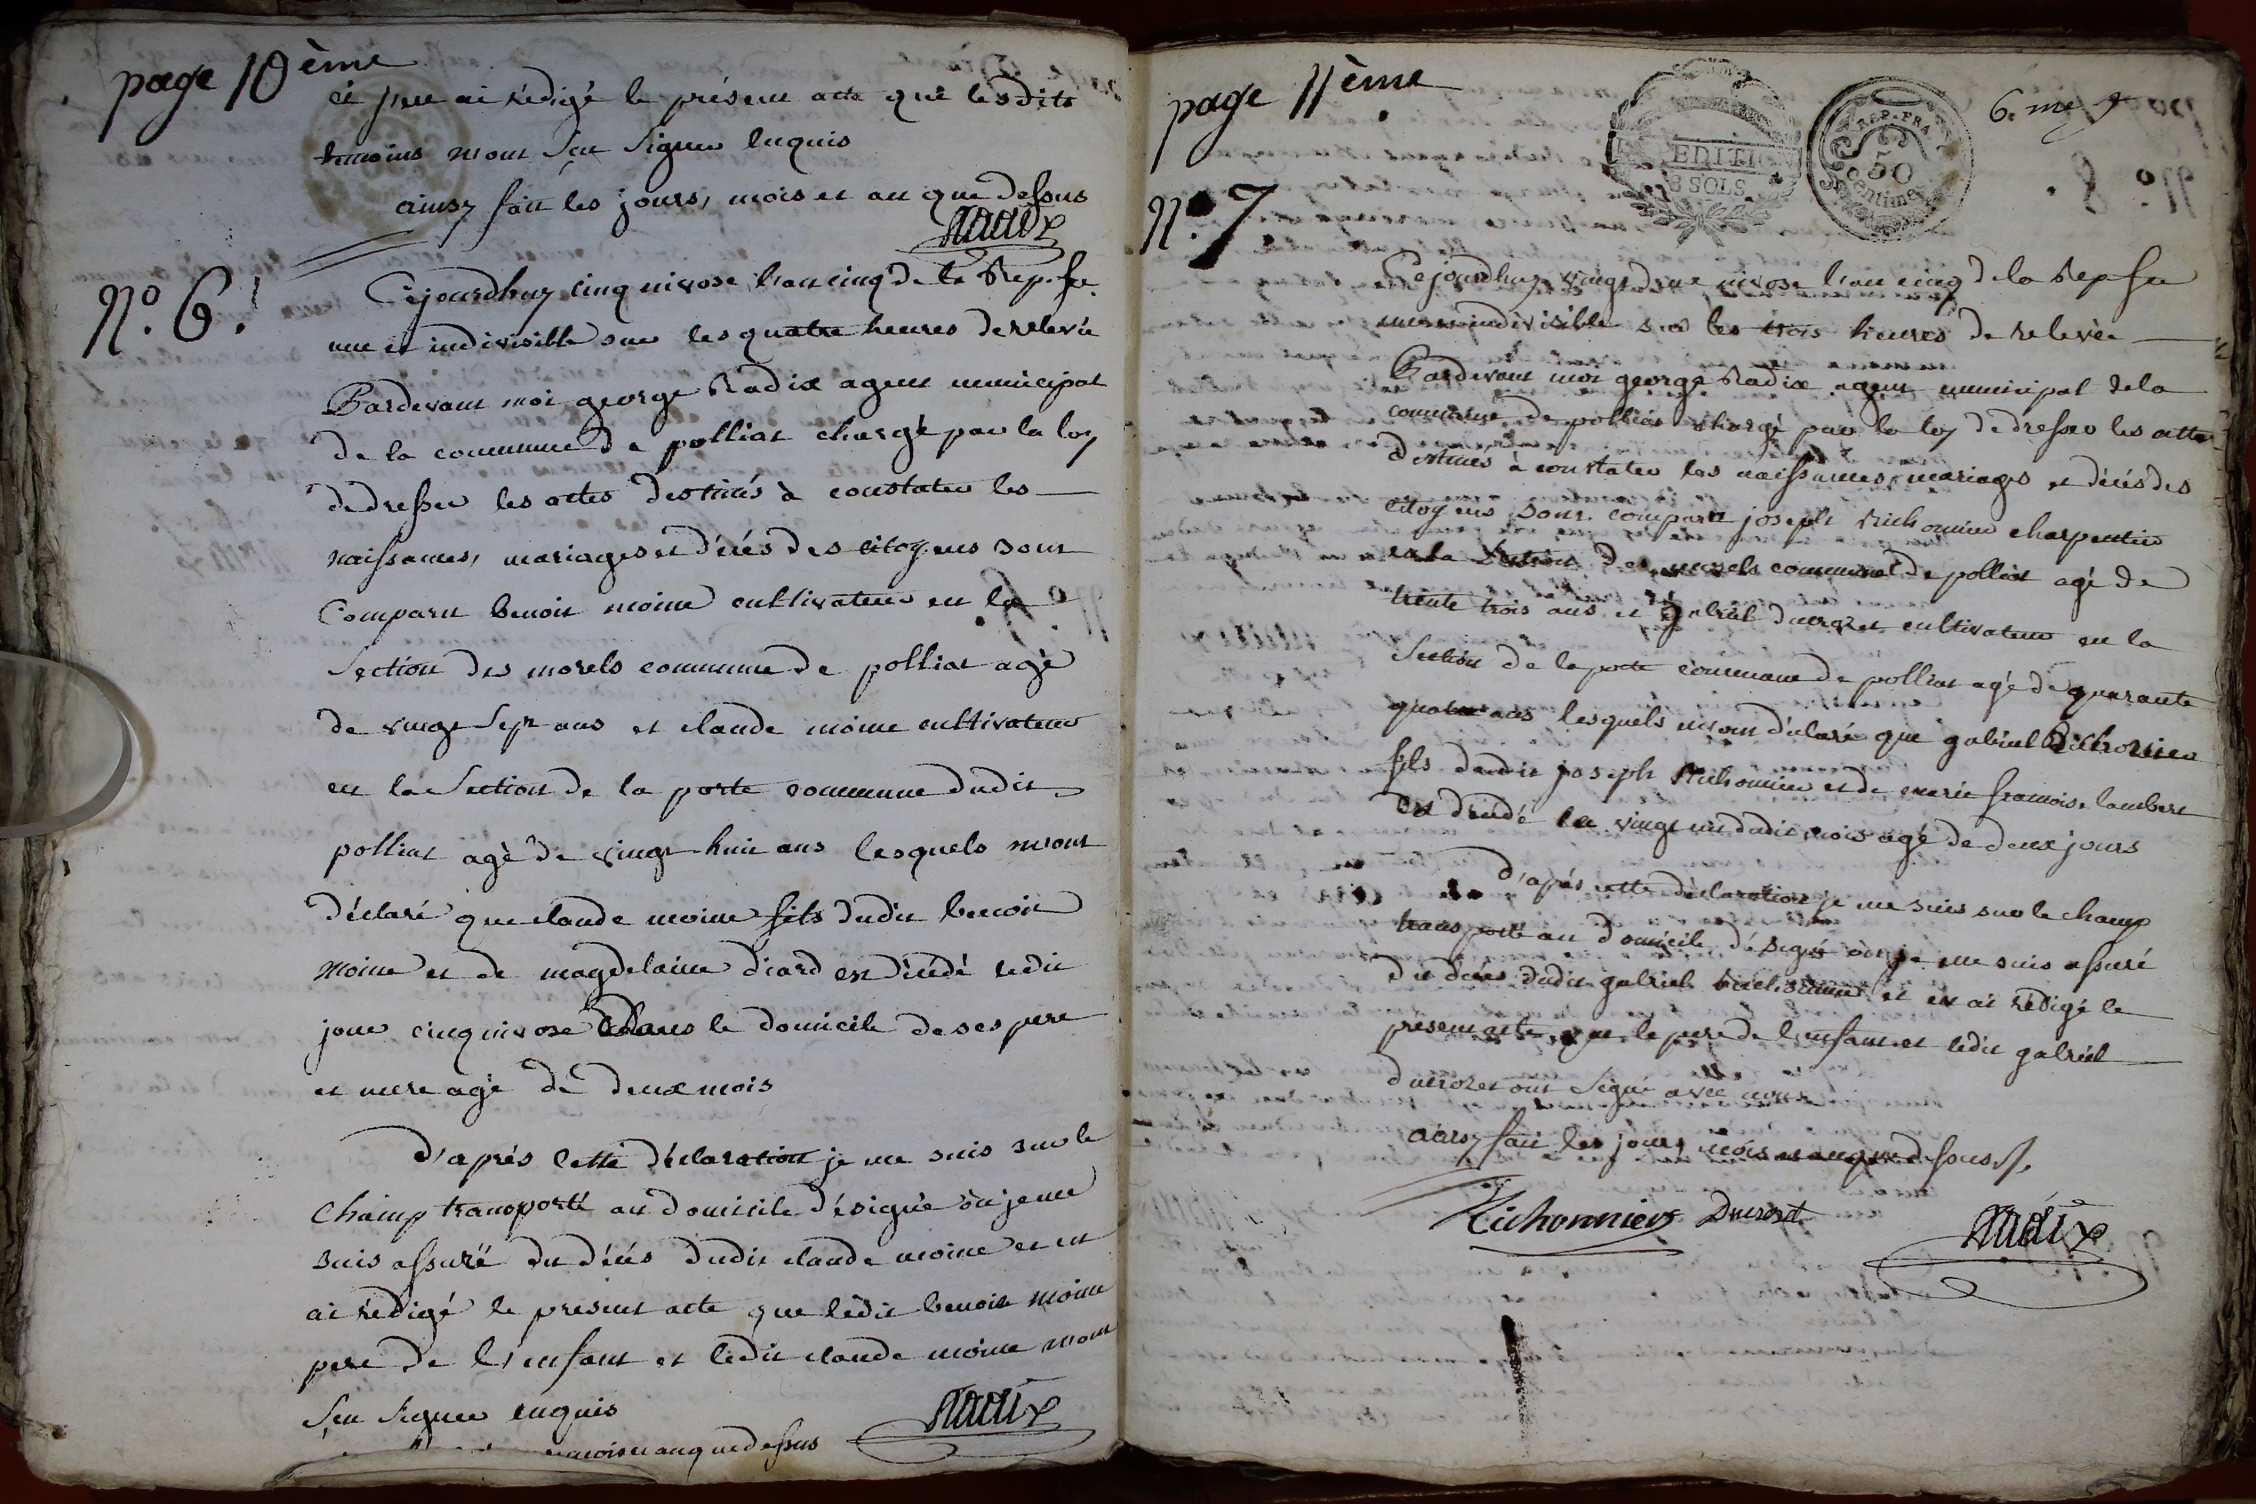 page 10ème
et j'en ai rédigé le présent acte que lesdits
temoins n'ont Sçu Signer enquis
ainsy fait les jours, mois et an que dessus
Radix
N°. 6.
Cejourdhuy cinq nivose l'an cinq de la Rep. fr.
une et indivisible sur les quatre heures de relevée
Pardevant moi george Radix agent municipal
de la commune de polliat chargé par la loy
de dresser les actes destinés à constater les
naissances, mariages et décés des citoyens sont
Comparu benoit moine cultivateur en la
Section des morels commune de polliat agé
de vingt Sept ans et claude moine cultivateur
en la Section de la porte commune dudit
polliat agé de vingt huit ans lesquels m'ont
déclaré que claude moine fils dudit benoit
moine et de magdelaine diard est décédé ledit
jour cinq nivose dans le domicile de ses pere
et mere agé de deux mois
D'après cette déclaration je me suis sur le
champ transporté au domicile désigné où je me
suis assuré du décés dudit claude moine et en
ai rédigé le présent acte que ledit benoit moine
pere de l'enfant et ledit claude moine n'ont
Sçu Signer enquis
mois et an que dessus
Radix
page 11ème
EXPEDITION
8 SOLS.
REP. FRA
50
Centimes
6. me
N°. 7
Cejourdhuy vingt deux nivose l'an cinq de la Rep fr
une et indivisible sur les trois heures de relevée
Pardevant moi george Radix agent municipal de la
commune de polliat chargé par la loy de dresser les actes
destinés à constater les naissances, mariages et décés des
citoyens sont comparu joseph Richonnier charpentier
en la Section des morels commune de polliat agé de
trente trois ans et gabriel ducrozet cultivateur en la
Section de la porte commune de polliat agé de quarante
quatre ans lesquels m'ont déclaré que gabriel Richonnier
fils dudit joseph Richonnier et de marie francoise lambert
est décédé le vingt un dudit mois agé de deux jours
D'après cette déclaration je me suis sur le champ
transporté au domicile désigné où je me suis assuré
du décés dudit gabriel Richonnier et en ai rédigé le
présent acte que le pere de l'enfant et ledit gabriel
ducrozet ont Signé avec nous
ainsy fait les jour, mois et an que dessus
Richonnier Ducrozet
Radix